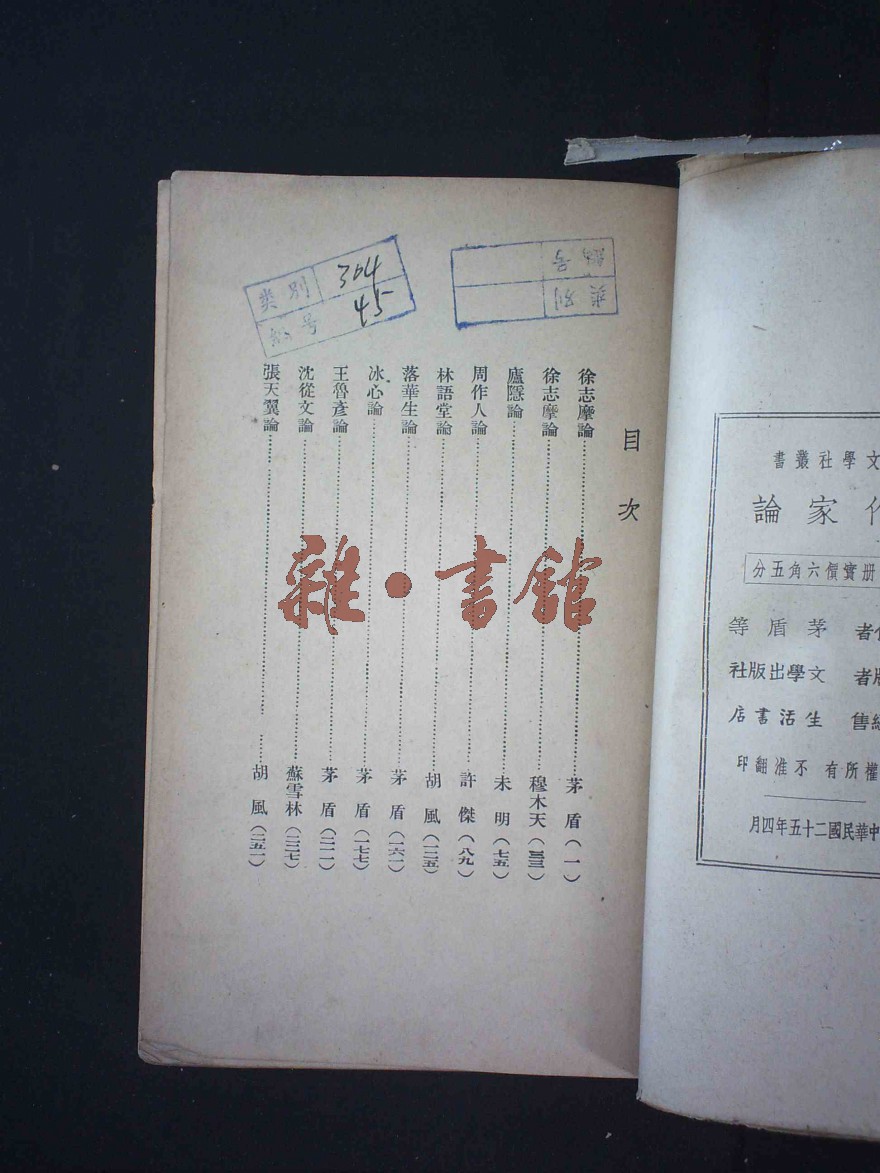 目次
徐志摩論……茅盾(一)
徐志摩論……穆木天(三三)
廬隱論……未明(七五)
周作人論……許傑(八九)
林語堂論……胡風(一三五)
落華生論……茅盾(一六一)
冰心論……茅盾(一七七)
王魯彥論……茅盾(二一一)
沈從文論……蘇雪林(二二七)
張天翼論……胡風(二五一)
类別 304
编号 45
类別
编号
雜·書館
文學社叢書
作家論
册實價六角五分
者 茅盾等
者 文學出版社
售 生活書店
權所有 不准翻印
中華民國二十五年四月